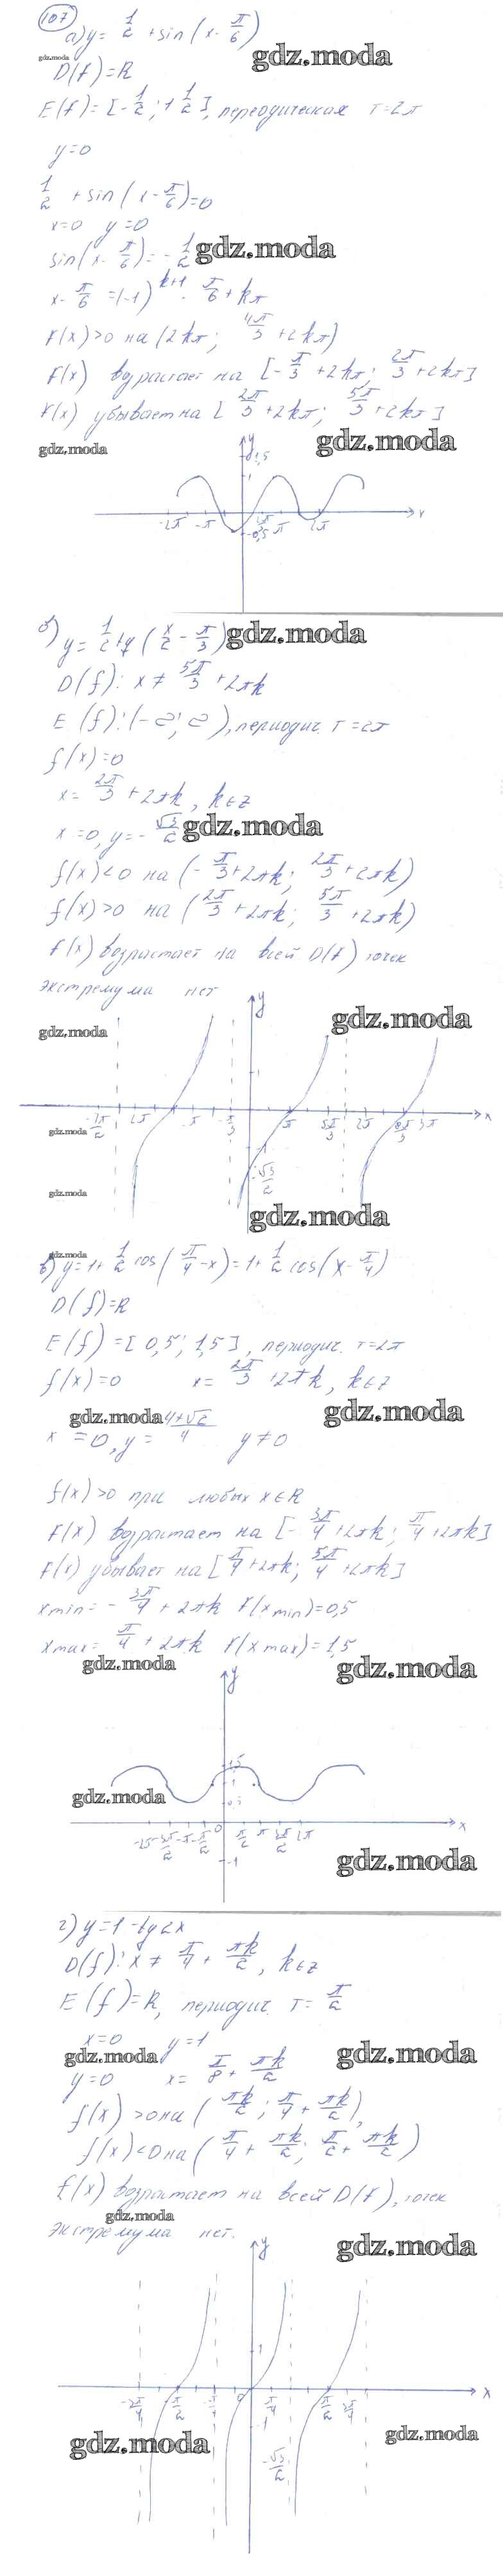 107
а) y = 1/2 + sin(x - π/6)
gdz.moda
gdz.moda
D(f) = R
E(f) = [-1/2; 1 1/2], переодическая T = 2π
y = 0
1/2 + sin(x - π/6) = 0
x = 0 y = 0
sin(x - π/6) = -1/2
gdz.moda
x - π/6 = (-1)^{k+1} · π/6 + kπ
f(x) > 0 на (2kπ; 4π/3 + 2kπ)
f(x) возрастает на [-π/3 + 2kπ; 2π/3 + 2kπ]
f(x) убывает на [2π/3 + 2kπ; 5π/3 + 2kπ]
gdz.moda
gdz.moda
y
1,5
1
-2π -π π 2π x
-0,5
б) y = 1/2 tg(x/2 - π/3)
gdz.moda
D(f): x ≠ 5π/3 + 2πk
E(f): (-∞; ∞), периодич. T = 2π
f(x) = 0
x = 2π/3 + 2πk, k∈Z
x = 0, y = -√3/2
gdz.moda
f(x) < 0 на (-π/3 + 2πk; 2π/3 + 2πk)
f(x) > 0 на (2π/3 + 2πk; 5π/3 + 2πk)
f(x) возрастает на всей D(f) точек
экстремума нет
y
gdz.moda
gdz.moda
1
-7π/2 2π -π -π/3 π 5π/3 2π 8π/3 3π x
gdz.moda
-1
-√3/2
gdz.moda
gdz.moda
gdz.moda
в) y = 1 + 1/2 cos(π/4 - x) = 1 + 1/2 cos(x - π/4)
D(f) = R
E(f) = [0,5; 1,5], периодич. T = 2π
f(x) = 0 x = 2π/3 + 2πk, k∈Z
gdz.moda
gdz.moda
x = 0, y = 4+√2/4 y ≠ 0
f(x) > 0 при любых x∈R
f(x) возрастает на [-3π/4 + 2πk; π/4 + 2πk]
f(x) убывает на [π/4 + 2πk; 5π/4 + 2πk]
xmin = -3π/4 + 2πk f(xmin) = 0,5
xmax = π/4 + 2πk f(xmax) = 1,5
gdz.moda
gdz.moda
y
1,5
gdz.moda
1
0,5
0
-3π/2 -π -π/2 π/2 π 3π/2 2π x
-1
gdz.moda
г) y = 1 - tg2x
D(f): x ≠ π/4 + πk/2, k∈Z
E(f) = R, периодич. T = π/2
x = 0 y = 1
gdz.moda
gdz.moda
y = 0 x = π/8 + πk/2
f(x) > 0 на (πk/2; π/4 + πk/2),
f(x) < 0 на (π/4 + πk/2; π/2 + πk/2)
f(x) возрастает на всей D(f), точек
gdz.moda
экстремума нет.
y
gdz.moda
1
-3π/4 -π/2 -π/4 0 π/4 π/2 3π/4 x
-1
gdz.moda
gdz.moda
-√3/2